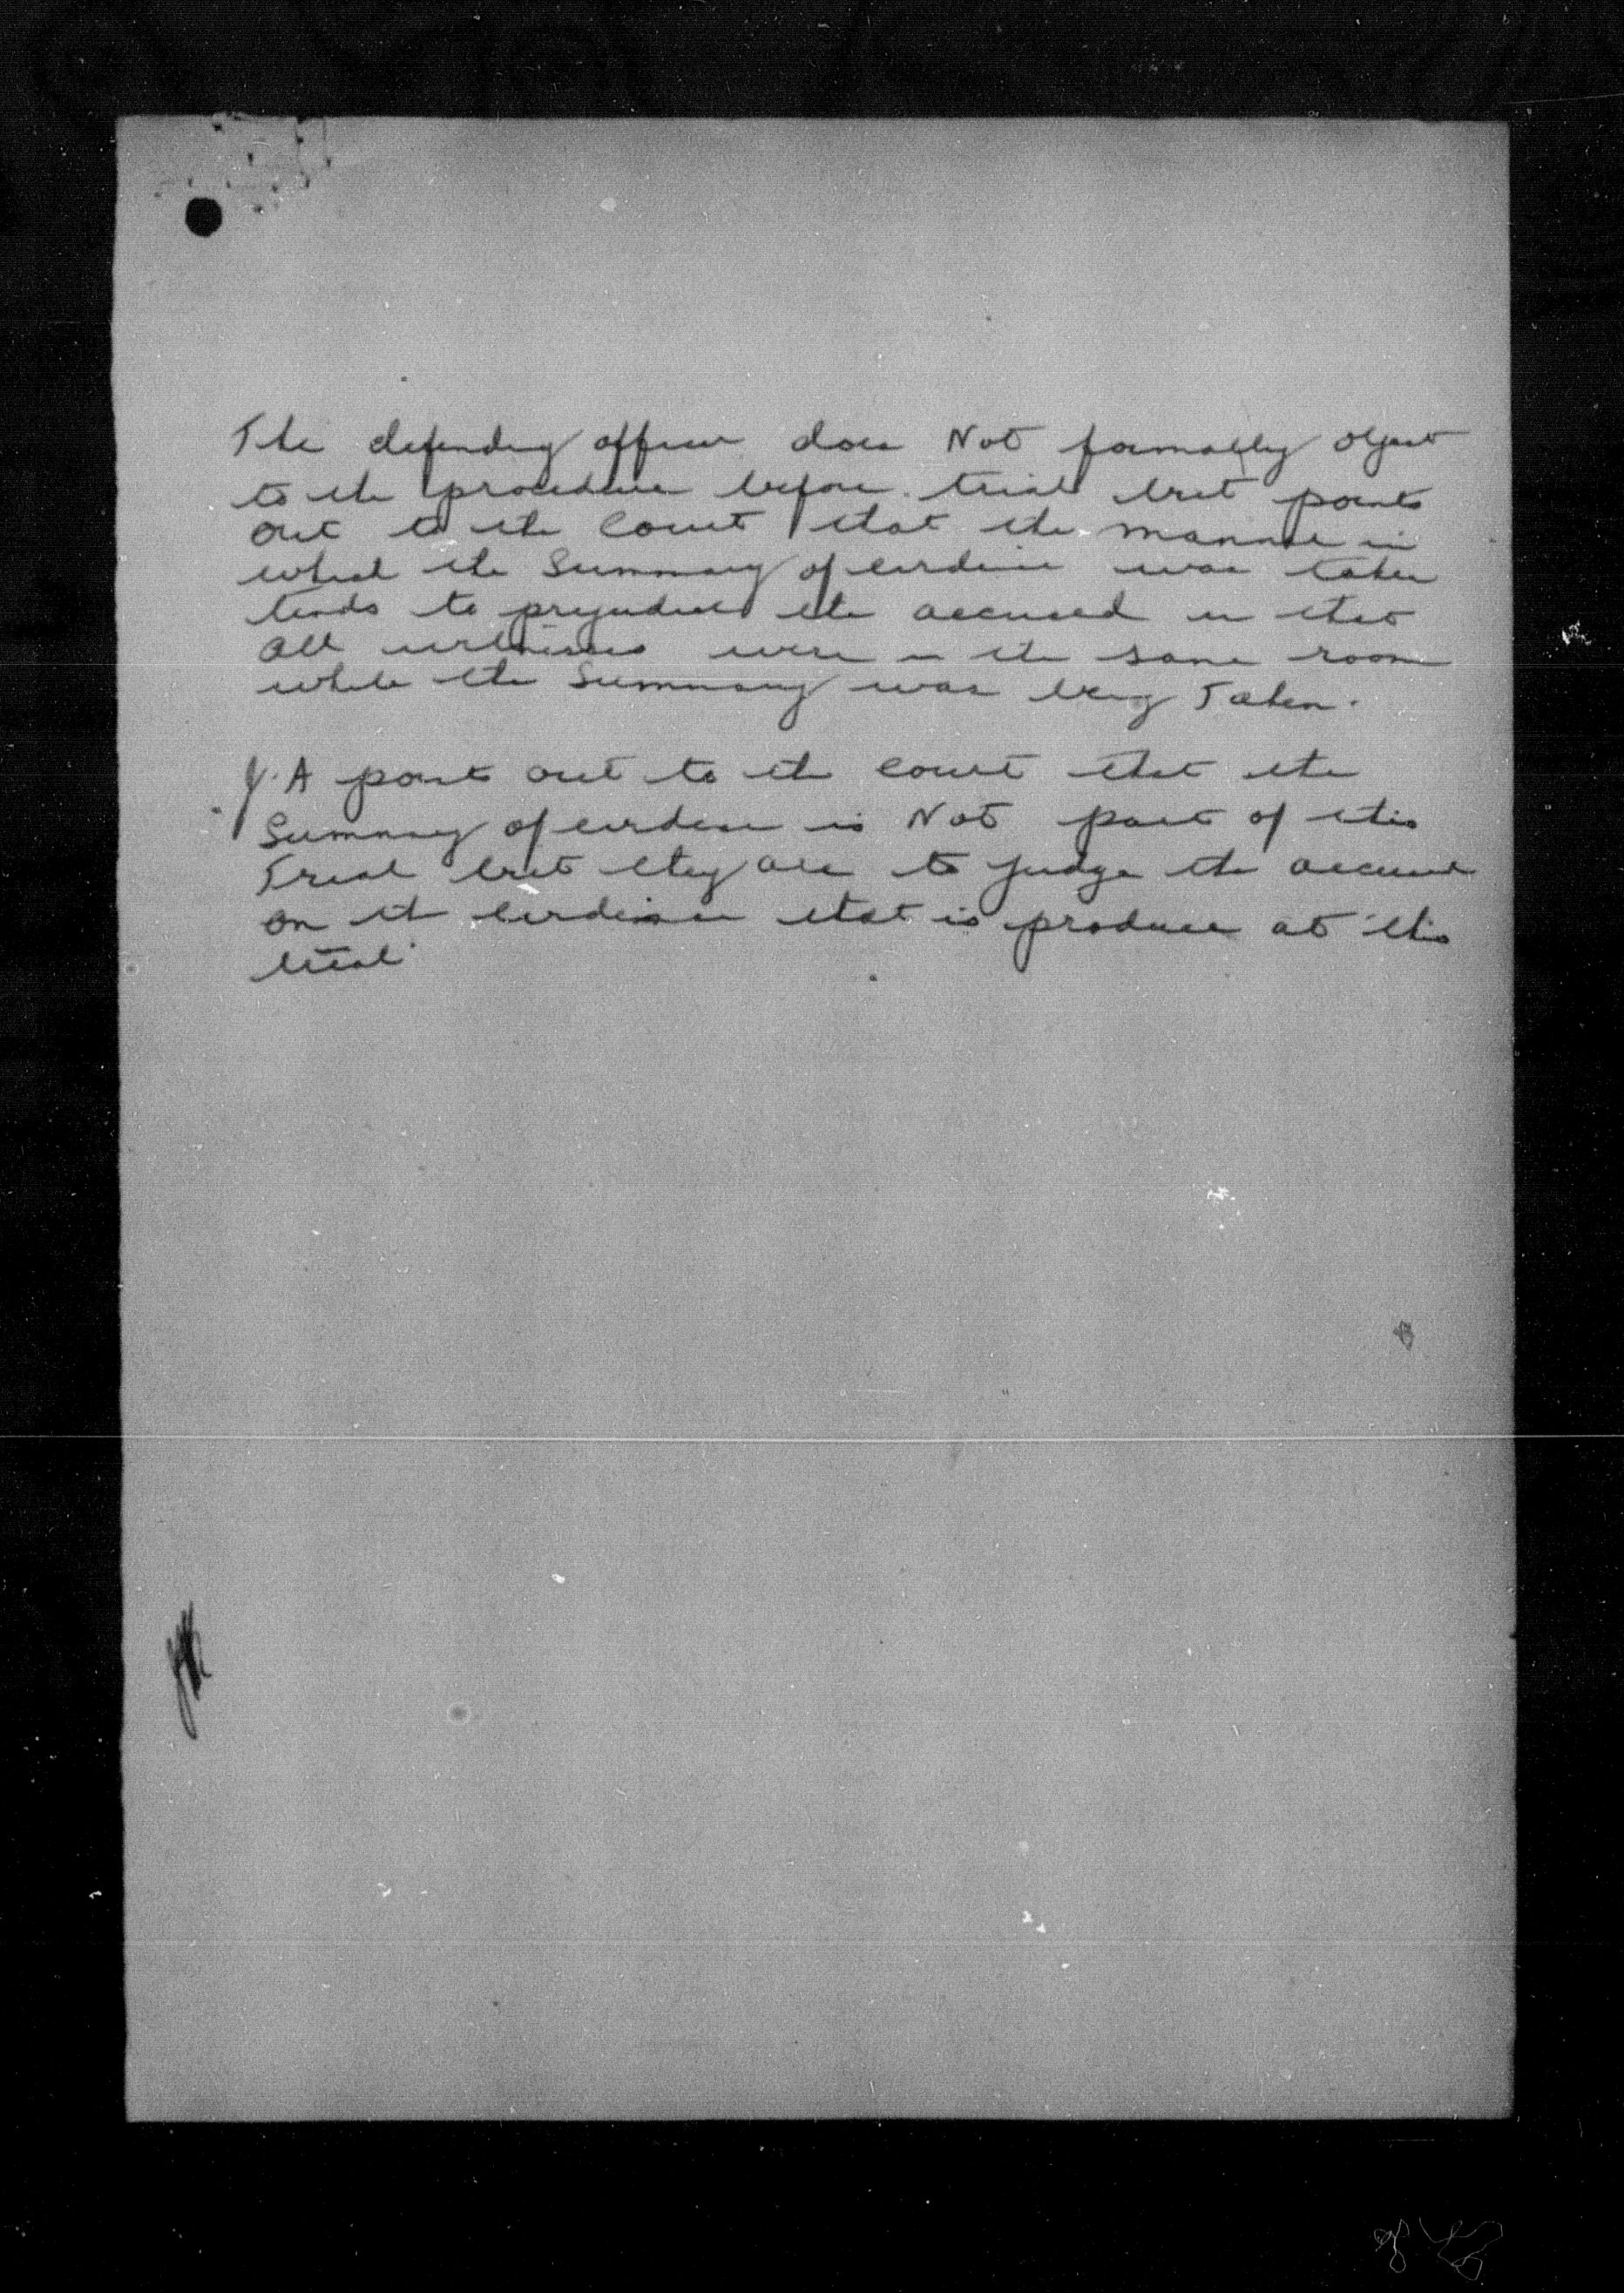 The defending officer does Not formally object
to the procedure before trial but points
out to the Court that the manner in
which the Summary of evidence was taken
tends to prejudice the accused in that
all witnesses were in the same room
while the Summary was being Taken.
J.A point out to the court that the
Summary of evidence is Not part of this
Trial but they are to judge the accused
on the evidence that is produce at this
trial.